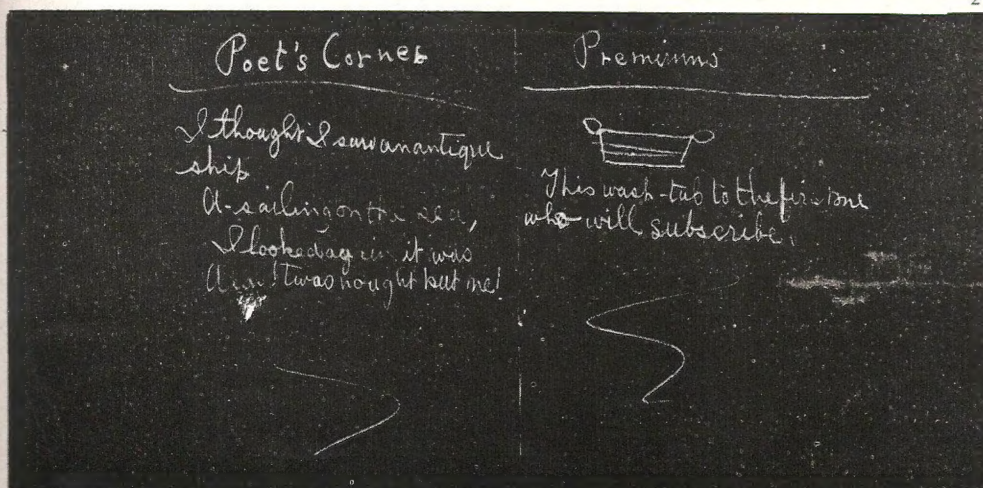 Poet's Corner
I thought I saw an antique
ship
A-sailing on the sea,
I looked again it was
'Twas nought but me!
Premiums
This wash-tub to the first one
who will subscribe.
2